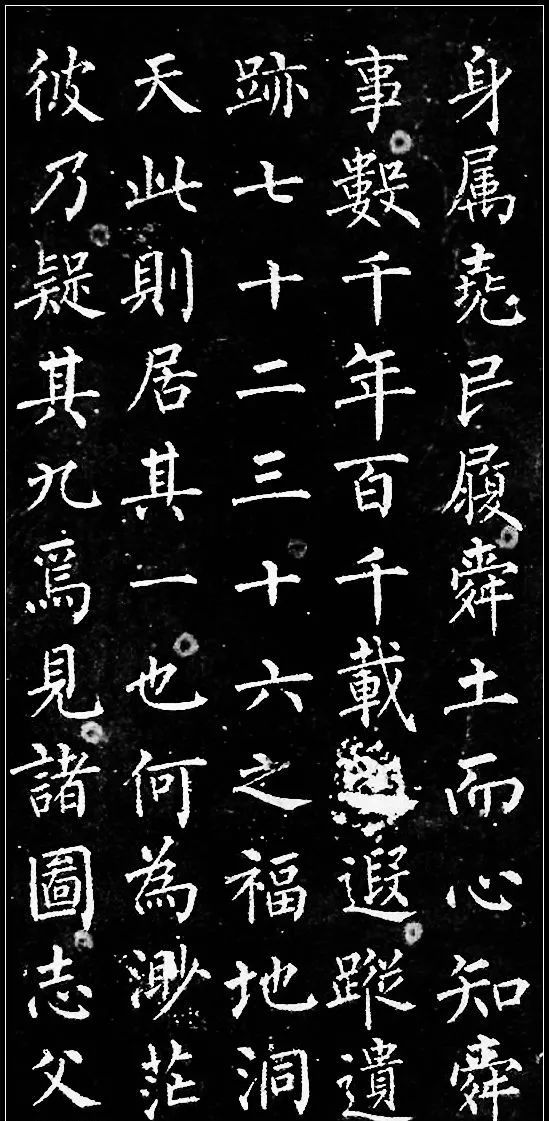 身属堯巳履舜土而心知舜
事數千年百千載遐蹤遺
跡七十二三十六之福地洞
天此則居其一也何為渺茫
彼乃疑其九爲見諸圖志父